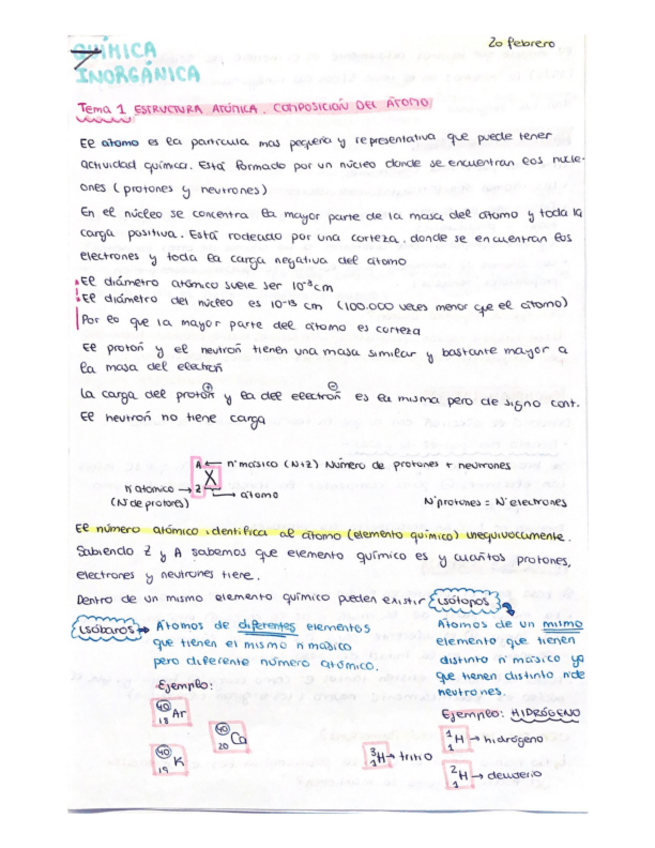 QUÍMICA
INORGÁNICA
20 febrero
Tema 1 ESTRUCTURA ATÓMICA. COMPOSICIÓN DEL ÁTOMO
El átomo es la partícula mas pequeña y representativa que puede tener
actividad química. Está formado por un núcleo donde se encuentran los nucle-
ones (protones y neutrones)
En el núcleo se concentra la mayor parte de la masa del átomo y toda la
carga positiva. Está rodeado por una corteza, donde se encuentran los
electrones y toda la carga negativa del átomo
El diámetro atómico suele ser 10⁻⁸cm
El diámetro del núcleo es 10⁻¹³ cm (100.000 veces menor que el átomo)
Por lo que la mayor parte del átomo es corteza
El protón y el neutrón tienen una masa similar y bastante mayor a
la masa del electrón
La carga del protón ⊕ y la del electrón ⊖ es la misma pero de signo cont.
El neutrón no tiene carga
A ← nº másico (N+Z) Número de protones + neutrones
X
nº atómico → Z → átomo
(Nº de protones)
Nº protones = Nº electrones
El número atómico identifica al átomo (elemento químico) inequívocamente.
Sabiendo Z y A sabemos que elemento químico es y cuántos protones,
electrones y neutrones tiene.
Dentro de un mismo elemento químico pueden existir isótopos
Isóbaros → Átomos de diferentes elementos
que tienen el mismo n másico
pero diferente número atómico.
Ejemplo:
40 18 Ar
40 20 Ca
40 19 K
Átomos de un mismo
elemento que tienen
distinto nº másico ya
que tienen distinto nº de
neutrones.
Ejemplo: HIDRÓGENO
1 1 H → hidrógeno
3 1 H → tritio
2 1 H → deuterio